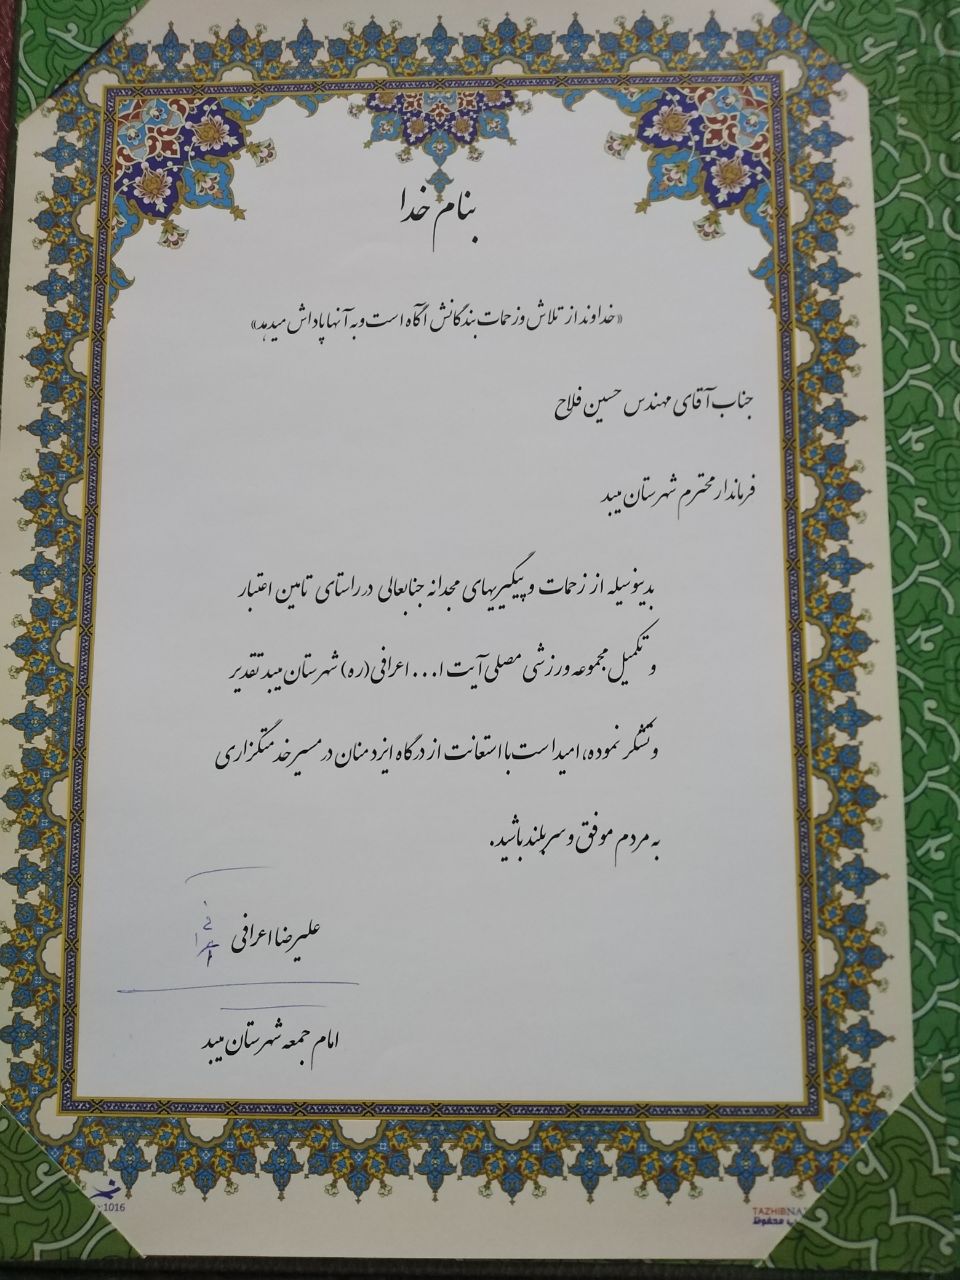 بنام خدا
«خداوند از تلاش و زحمات بندگانش آگاه است و به آنها پاداش میدهد»
جناب آقای مهندس حسین فلاح
فرماندار محترم شهرستان میبد
بدینوسیله از زحمات و پیگیریهای مجدانه جنابعالی در راستای تامین اعتبار
و تکمیل مجموعه ورزشی مصلی آیت ا... اعرافی (ره) شهرستان میبد تقدیر
و تشکر نموده، امید است با استعانت از درگاه ایزد منان در مسیر خدمتگزاری
به مردم موفق و سربلند باشید.
علیرضا اعرافی
امام جمعه شهرستان میبد
1016
TAZHIBNA
محفوظ